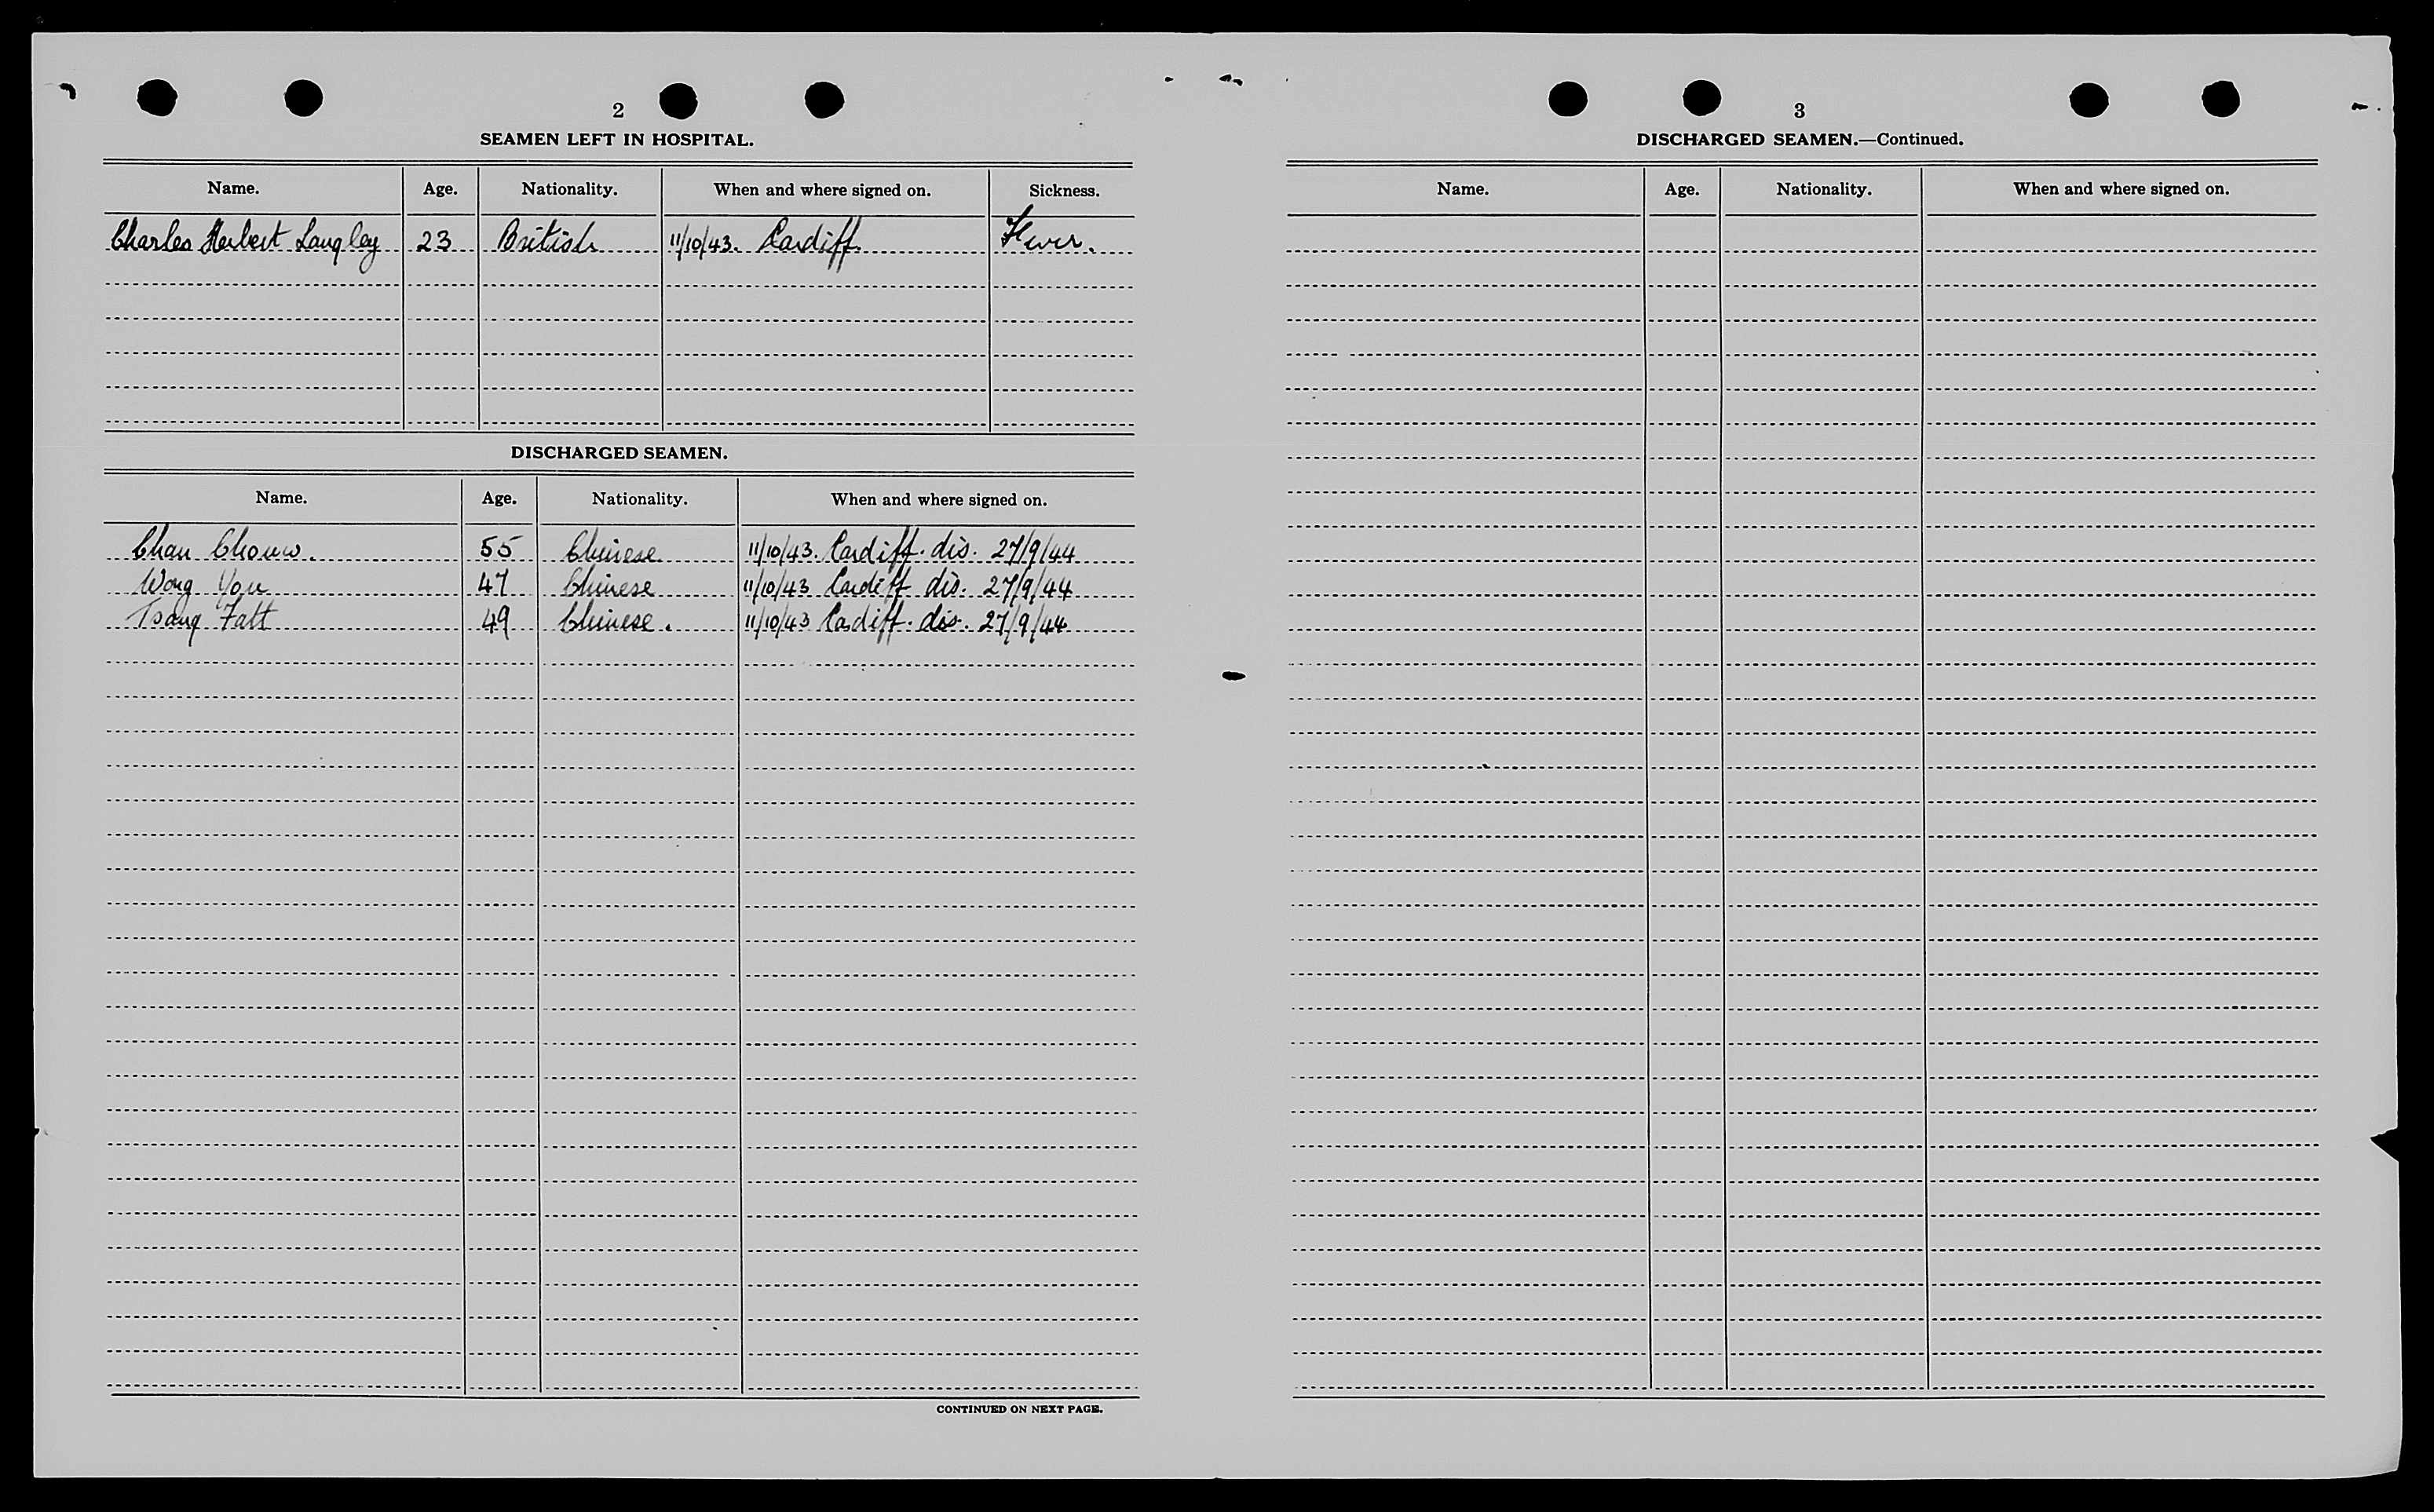 2
SEAMEN LEFT IN HOSPITAL.
Name. Age. Nationality. When and where signed on. Sickness.
Charles Herbert Langley 23 British 11/10/43. Cardiff Fever.
DISCHARGED SEAMEN.
Name. Age. Nationality. When and where signed on.
Chan Chouw. 55 Chinese 11/10/43. Cardiff. dis. 27/9/44
Wong You 47 Chinese 11/10/43 Cardiff dis. 27/9/44
Tsang Fatt 49 Chinese. 11/10/43 Cardiff. dis. 27/9/44
CONTINUED ON NEXT PAGE.
3
DISCHARGED SEAMEN.—Continued.
Name. Age. Nationality. When and where signed on.